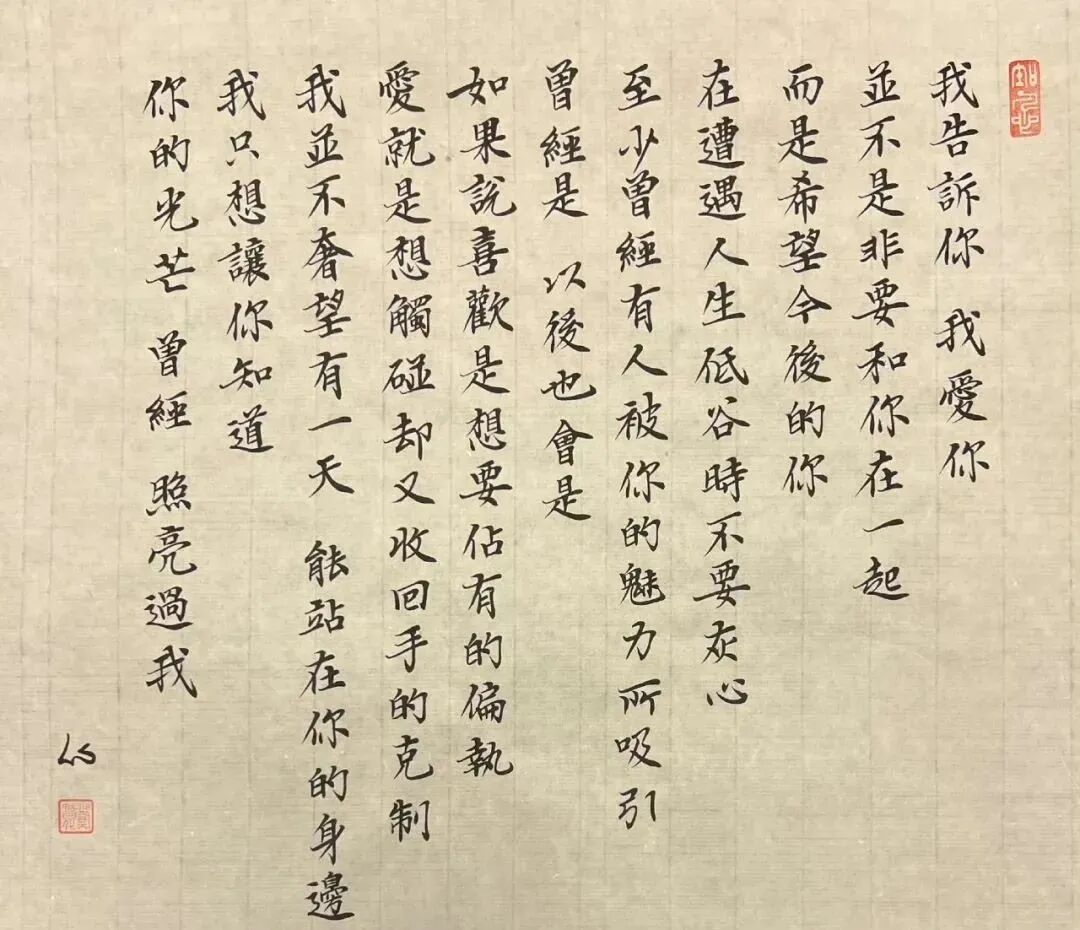 我告訴你 我愛你
並不是非要和你在一起
而是希望今後的你
在遭遇人生低谷時不要灰心
至少曾經有人被你的魅力所吸引
曾經是 以後也會是
如果說喜歡是想要佔有的偏執
愛就是想觸碰却又收回手的克制
我並不奢望有一天 能站在你的身邊
我只想讓你知道
你的光芒 曾經 照亮過我